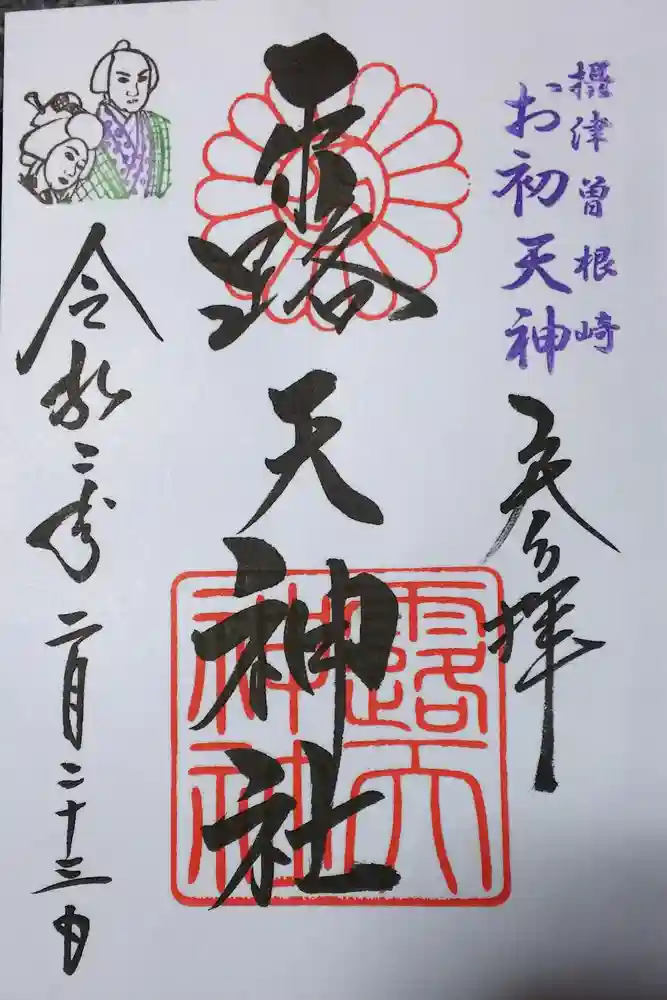 摂津曽根崎
お初天神
奉拝
露天神社
令和二年二月二十三日
露天
神社